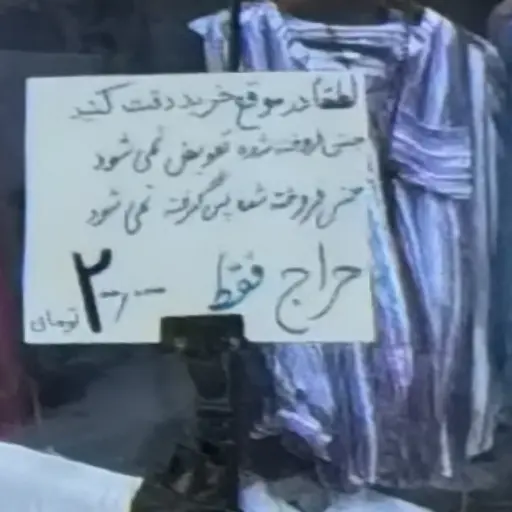 لطفاً در موقع خرید دقت کنید
جنس فروخته شده تعویض نمی شود
جنس فروخته شده پس گرفته نمی شود
حراج فقط ۲۰/۰۰۰ تومان